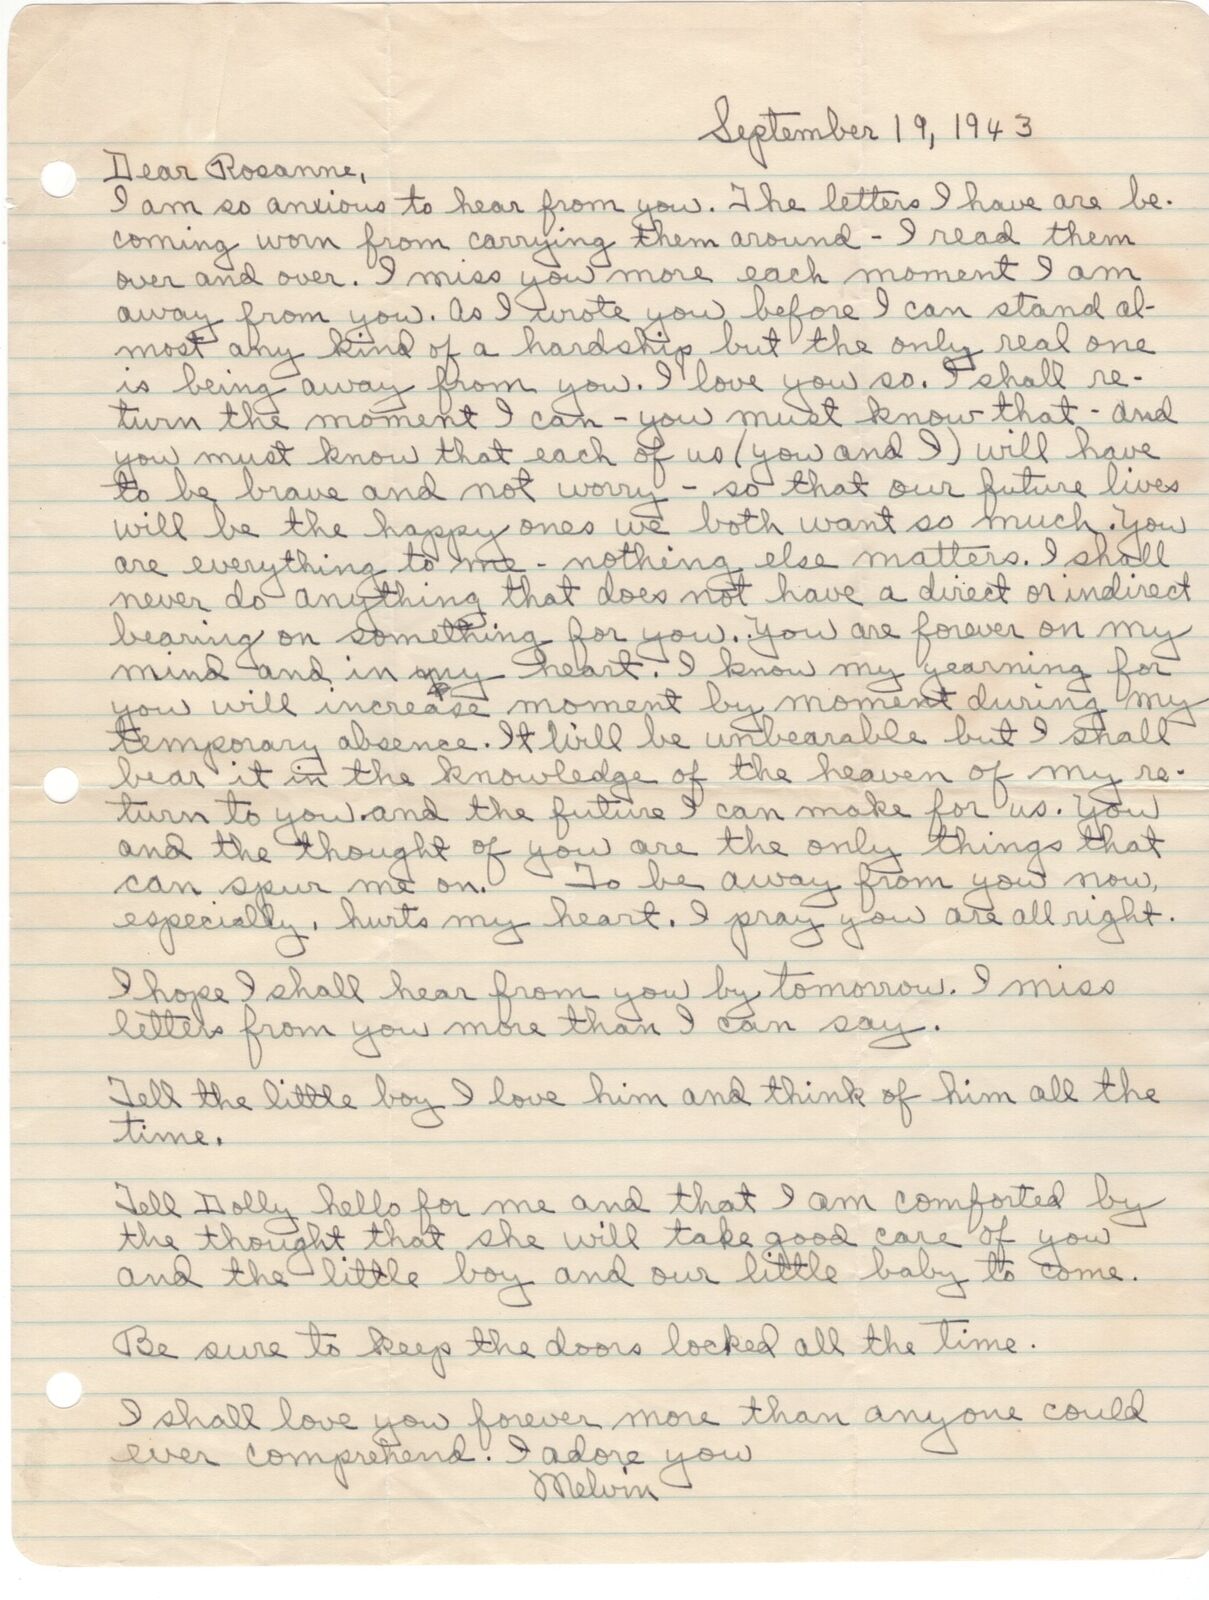 September 19, 1943
Dear Rosanne,
I am so anxious to hear from you. The letters I have are be-
coming worn from carrying them around - I read them
over and over. I miss you more each moment I am
away from you. As I wrote you before I can stand al-
most any kind of a hardship but the only real one
is being away from you. I love you so. I shall re-
turn the moment I can - you must know that - and
you must know that each of us (you and I) will have
to be brave and not worry - so that our future lives
will be the happy ones we both want so much. You
are everything to me - nothing else matters. I shall
never do anything that does not have a direct or indirect
bearing on something for you. You are forever on my
mind and in my heart. I know my yearning for
you will increase moment by moment during my
temporary absence. It will be unbearable but I shall
bear it in the knowledge of the heaven of my re-
turn to you and the future I can make for us. You
and the thought of you are the only things that
can spur me on. To be away from you now,
especially, hurts my heart. I pray you are all right.
I hope I shall hear from you by tomorrow. I miss
letters from you more than I can say.
Tell the little boy I love him and think of him all the
time.
Tell Dolly hello for me and that I am comforted by
the thought that she will take good care of you
and the little boy and our little baby to come.
Be sure to keep the doors locked all the time.
I shall love you forever more than anyone could
ever comprehend. I adore you
Melvin